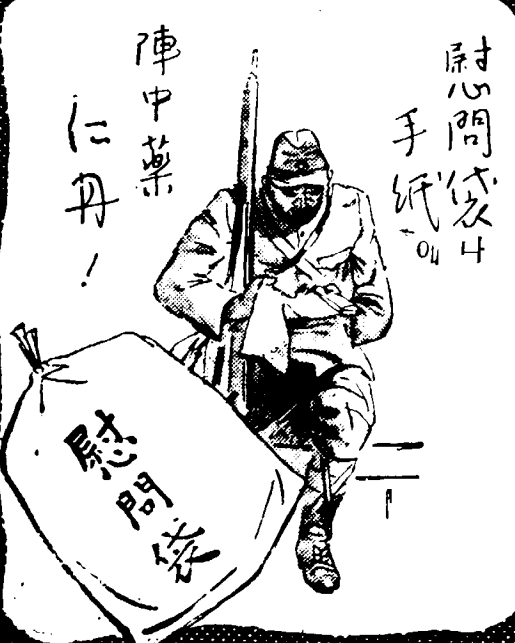 慰問袋
手紙
陣中薬
仁丹!
慰問袋